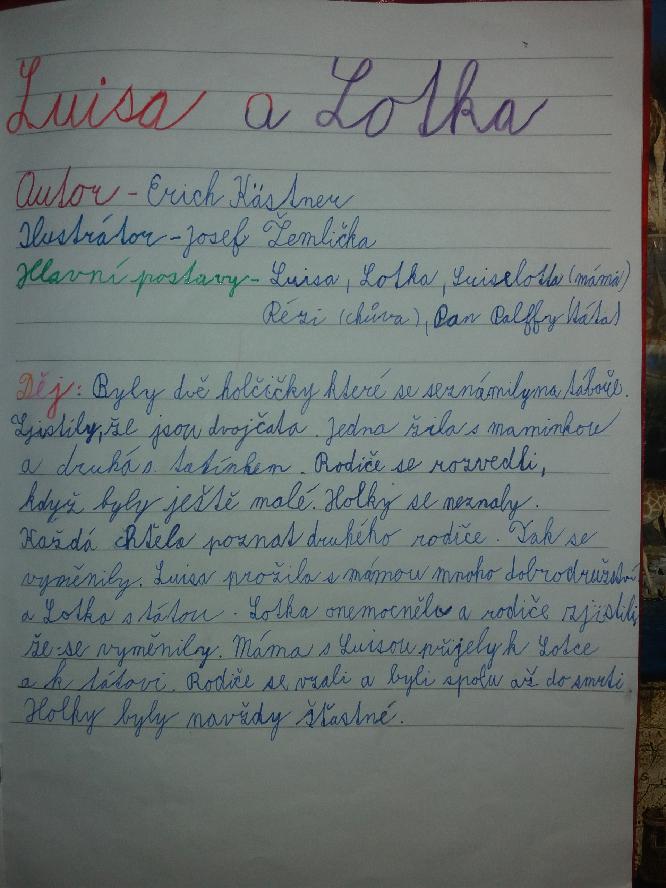 Luisa a Lotka
Autor - Erich Kästner
Ilustrátor - Josef Žemlička
Hlavní postavy - Luisa, Lotka, Luiselotta (máma)
Rézi (chůva), Pan Palffy (táta)
Děj: Byly dvě holčičky které se seznámily na táboře.
Zjistily, že jsou dvojčata. Jedna žila s maminkou
a druhá s tatínkem. Rodiče se rozvedli,
když byly ještě malé. Holky se neznaly.
Každá chtěla poznat druhého rodiče. Tak se
vyměnily. Luisa prožila s mámou mnoho dobrodružství
a Lotka s tátou. Lotka onemocněla a rodiče zjistili,
že se vyměnily. Máma s Luisou přijely k Lotce
a k tátovi. Rodiče se vzali a byli spolu až do smrti.
Holky byly navždy šťastné.